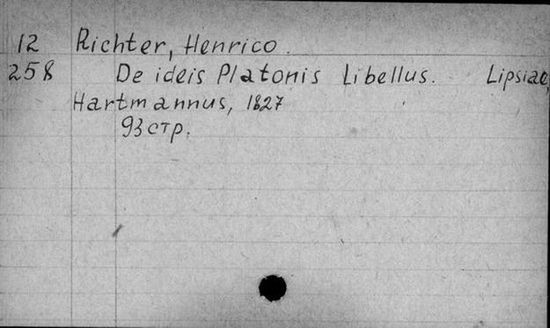 12 Richter, Henrico.
258 De ideis Platonis Libellus. Lipsiae,
Hartmannus, 1827
93 стр.